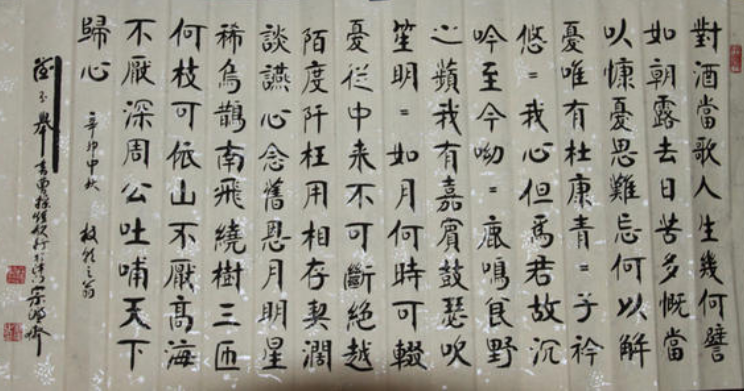 對酒當歌人生幾何譬
如朝露去日苦多慨當
以慷憂思難忘何以解
憂唯有杜康青=子衿
悠=我心但為君故沉
吟至今呦=鹿鳴食野
之蘋我有嘉賓鼓瑟吹
笙明=如月何時可輟
憂從中来不可斷絕越
陌度阡枉用相存契濶
談讌心念舊恩月明星
稀烏鵲南飛繞樹三匝
何枝可依山不厭高海
不厭深周公吐哺天下
歸心
辛卯中秋
書曹操短歌行於